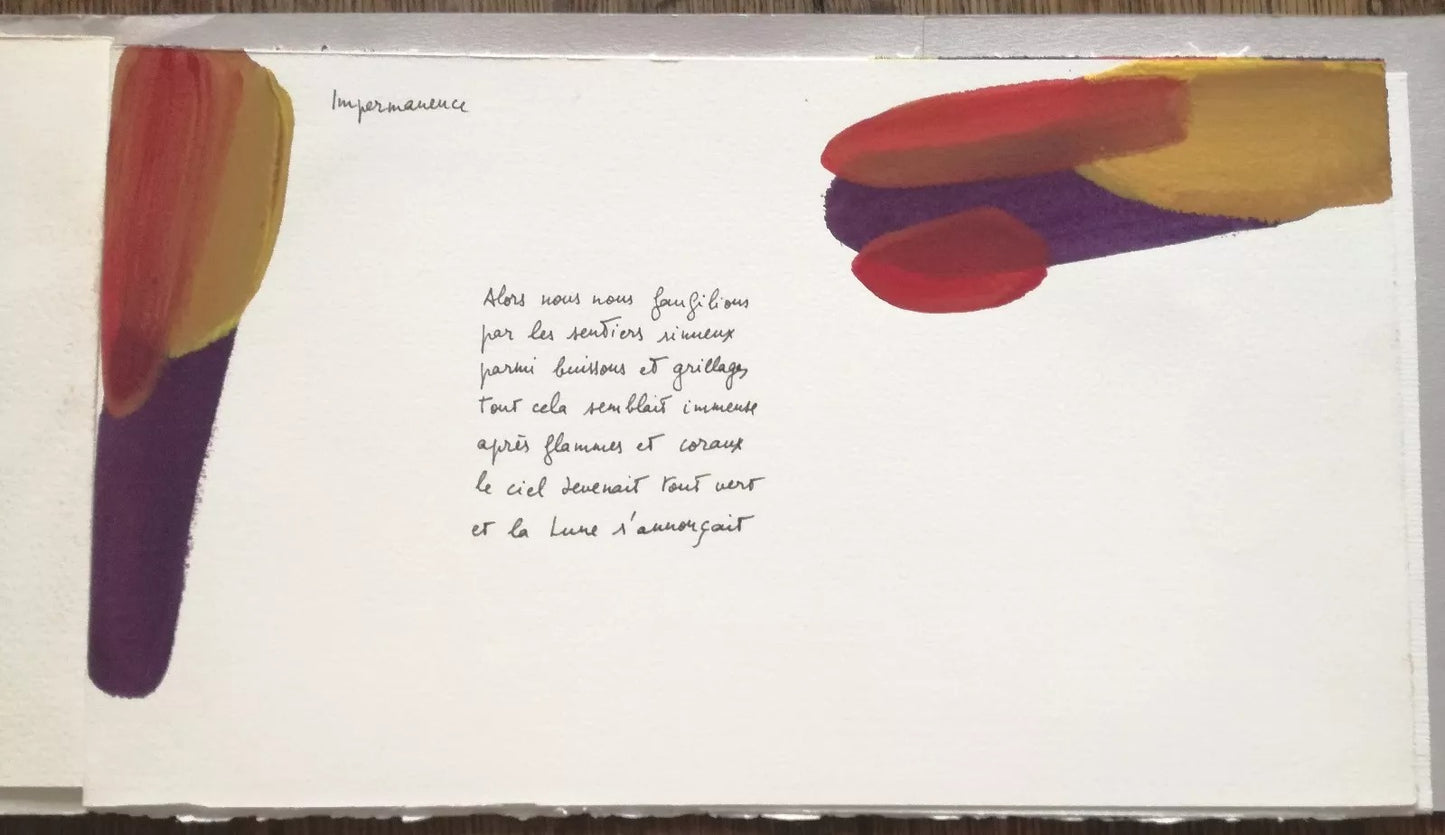 Impermanence
Alors nous nous faufilions
par les sentiers sinueux
parmi buissons et grillages
tout cela semblait immense
après flammes et coraux
le ciel devenait tout vert
et la Lune s'annonçait